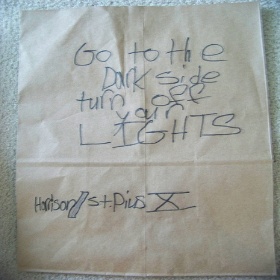 Go to the
Dark side
turn off
LIGHTS
Harrison//St. Pius X